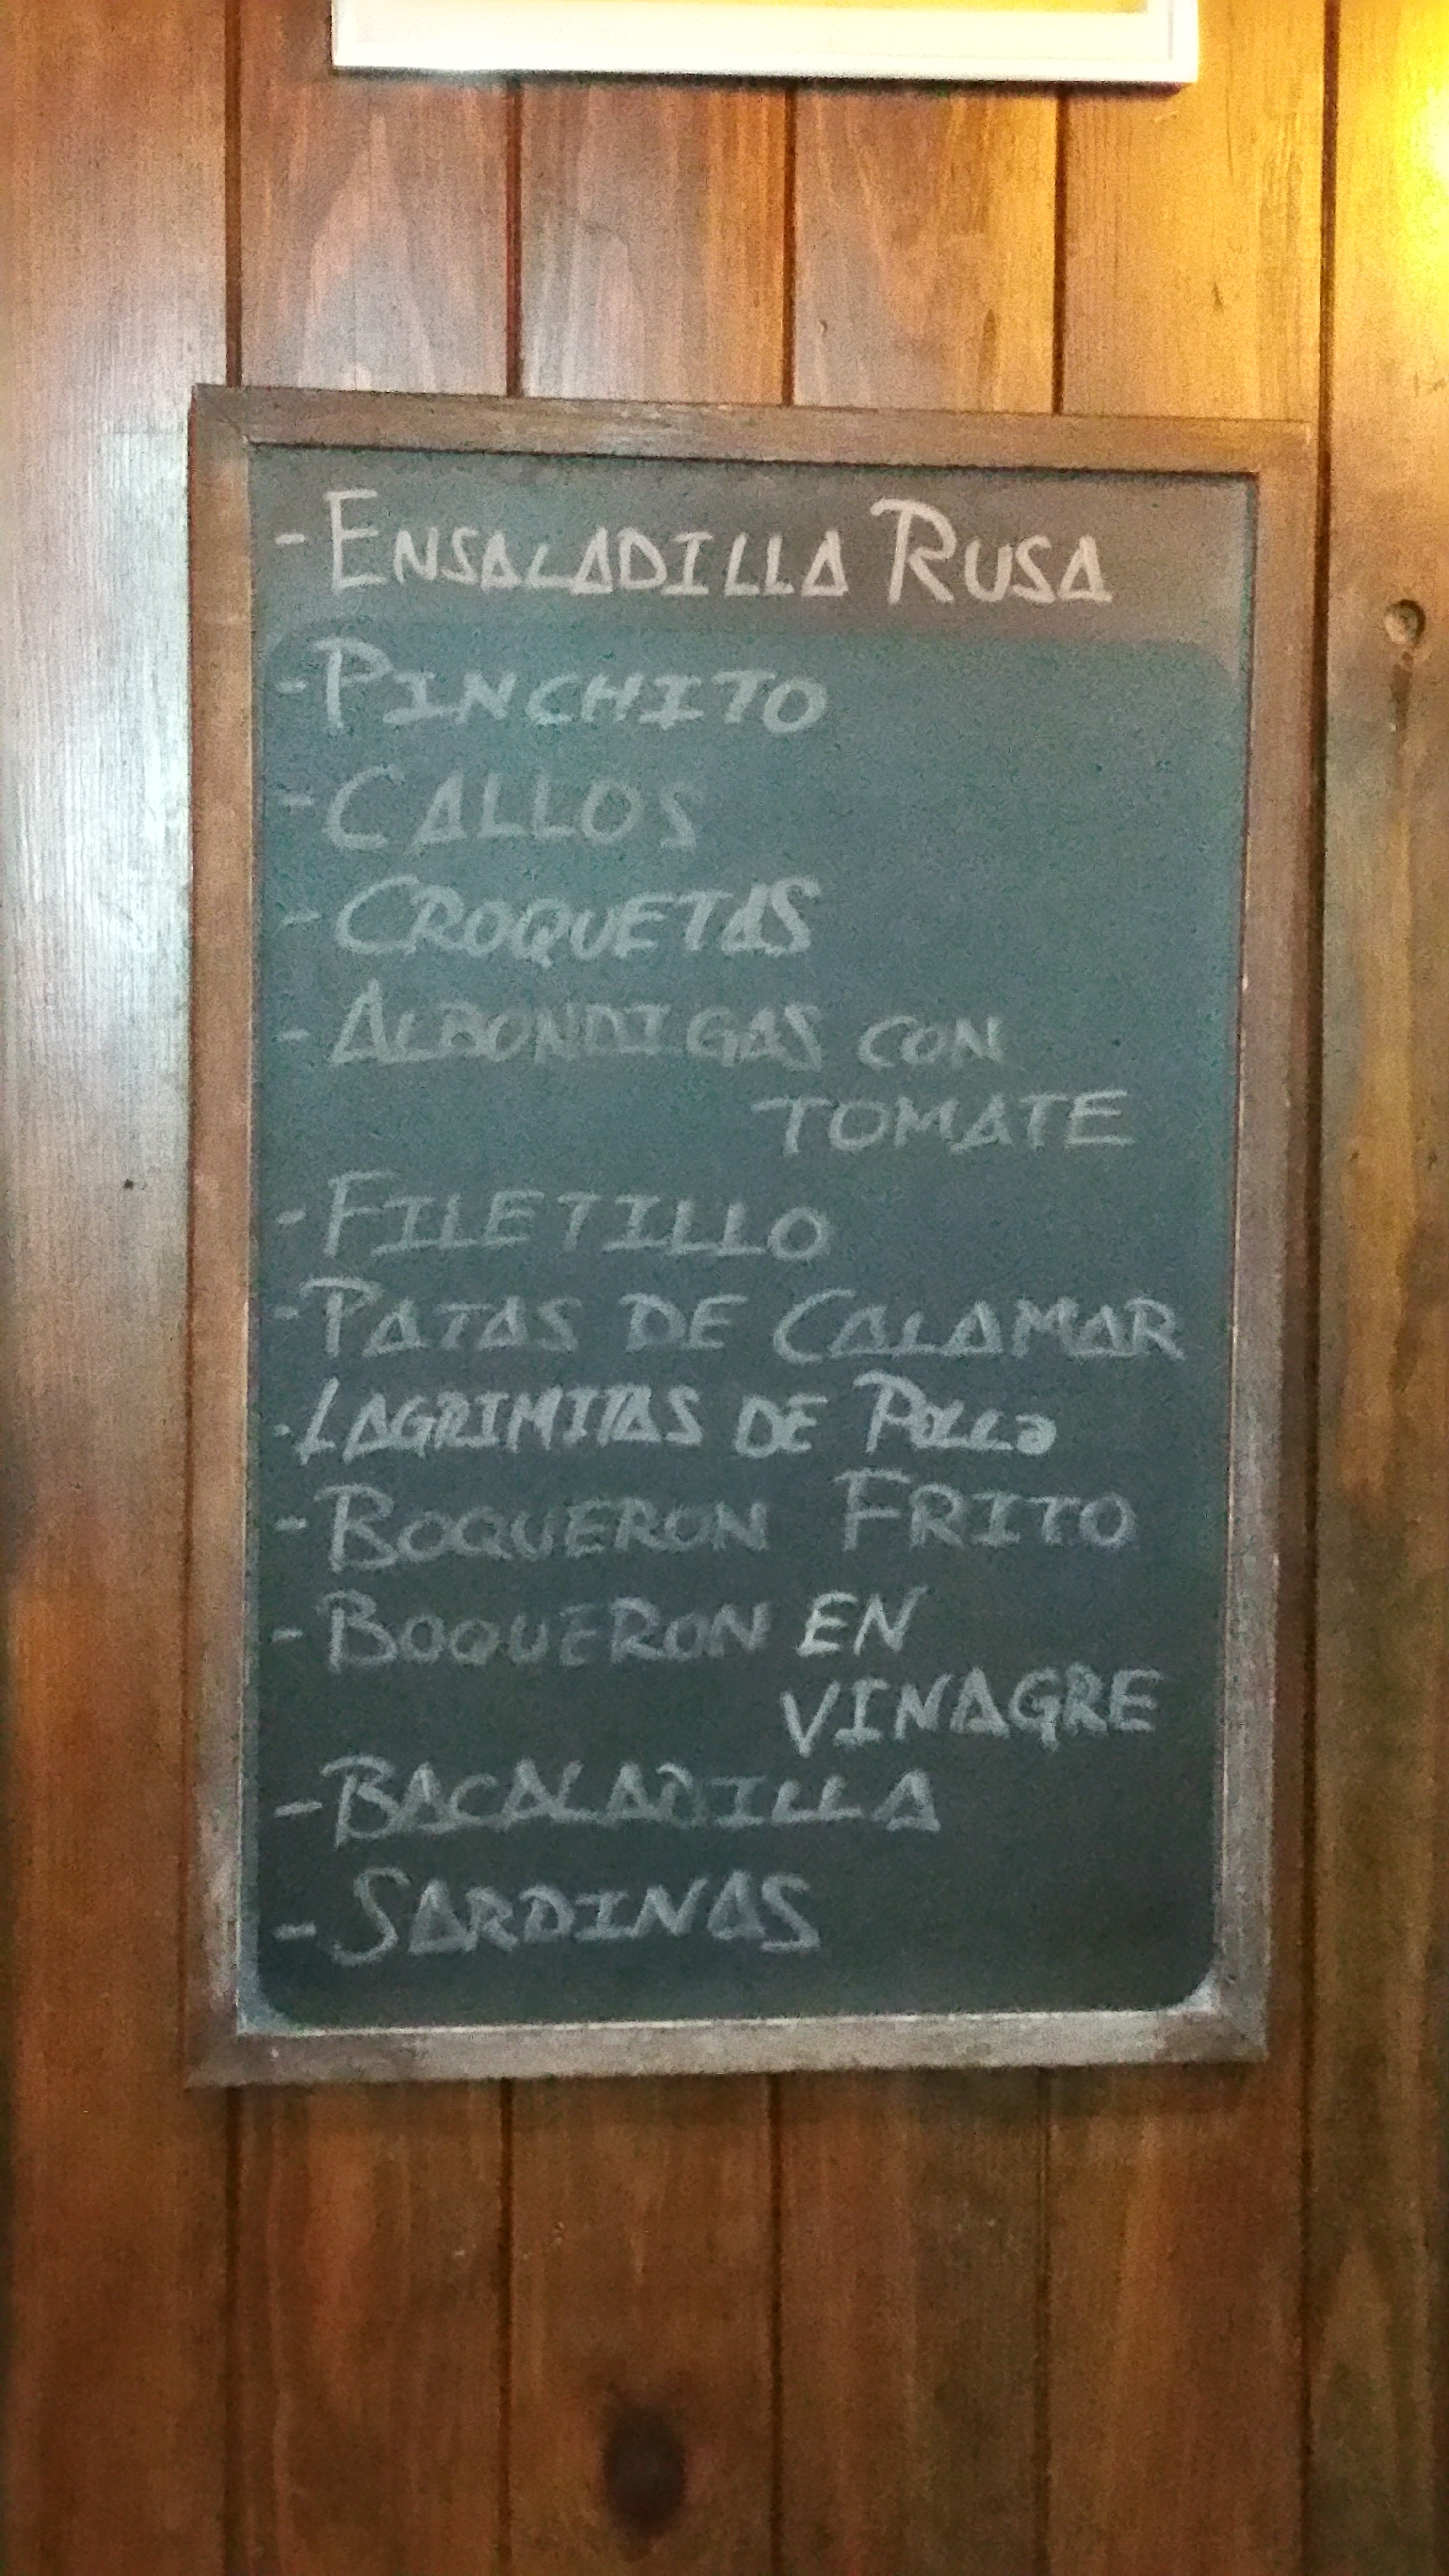 - ENSALADILLA RUSA
- PINCHITO
- CALLOS
- CROQUETAS
- ALBONDIGAS CON
TOMATE
- FILETILLO
- PATAS DE CALAMAR
- LAGRIMITAS DE POLLO
- BOQUERON FRITO
- BOQUERON EN
VINAGRE
- BACALADILLA
- SARDINAS